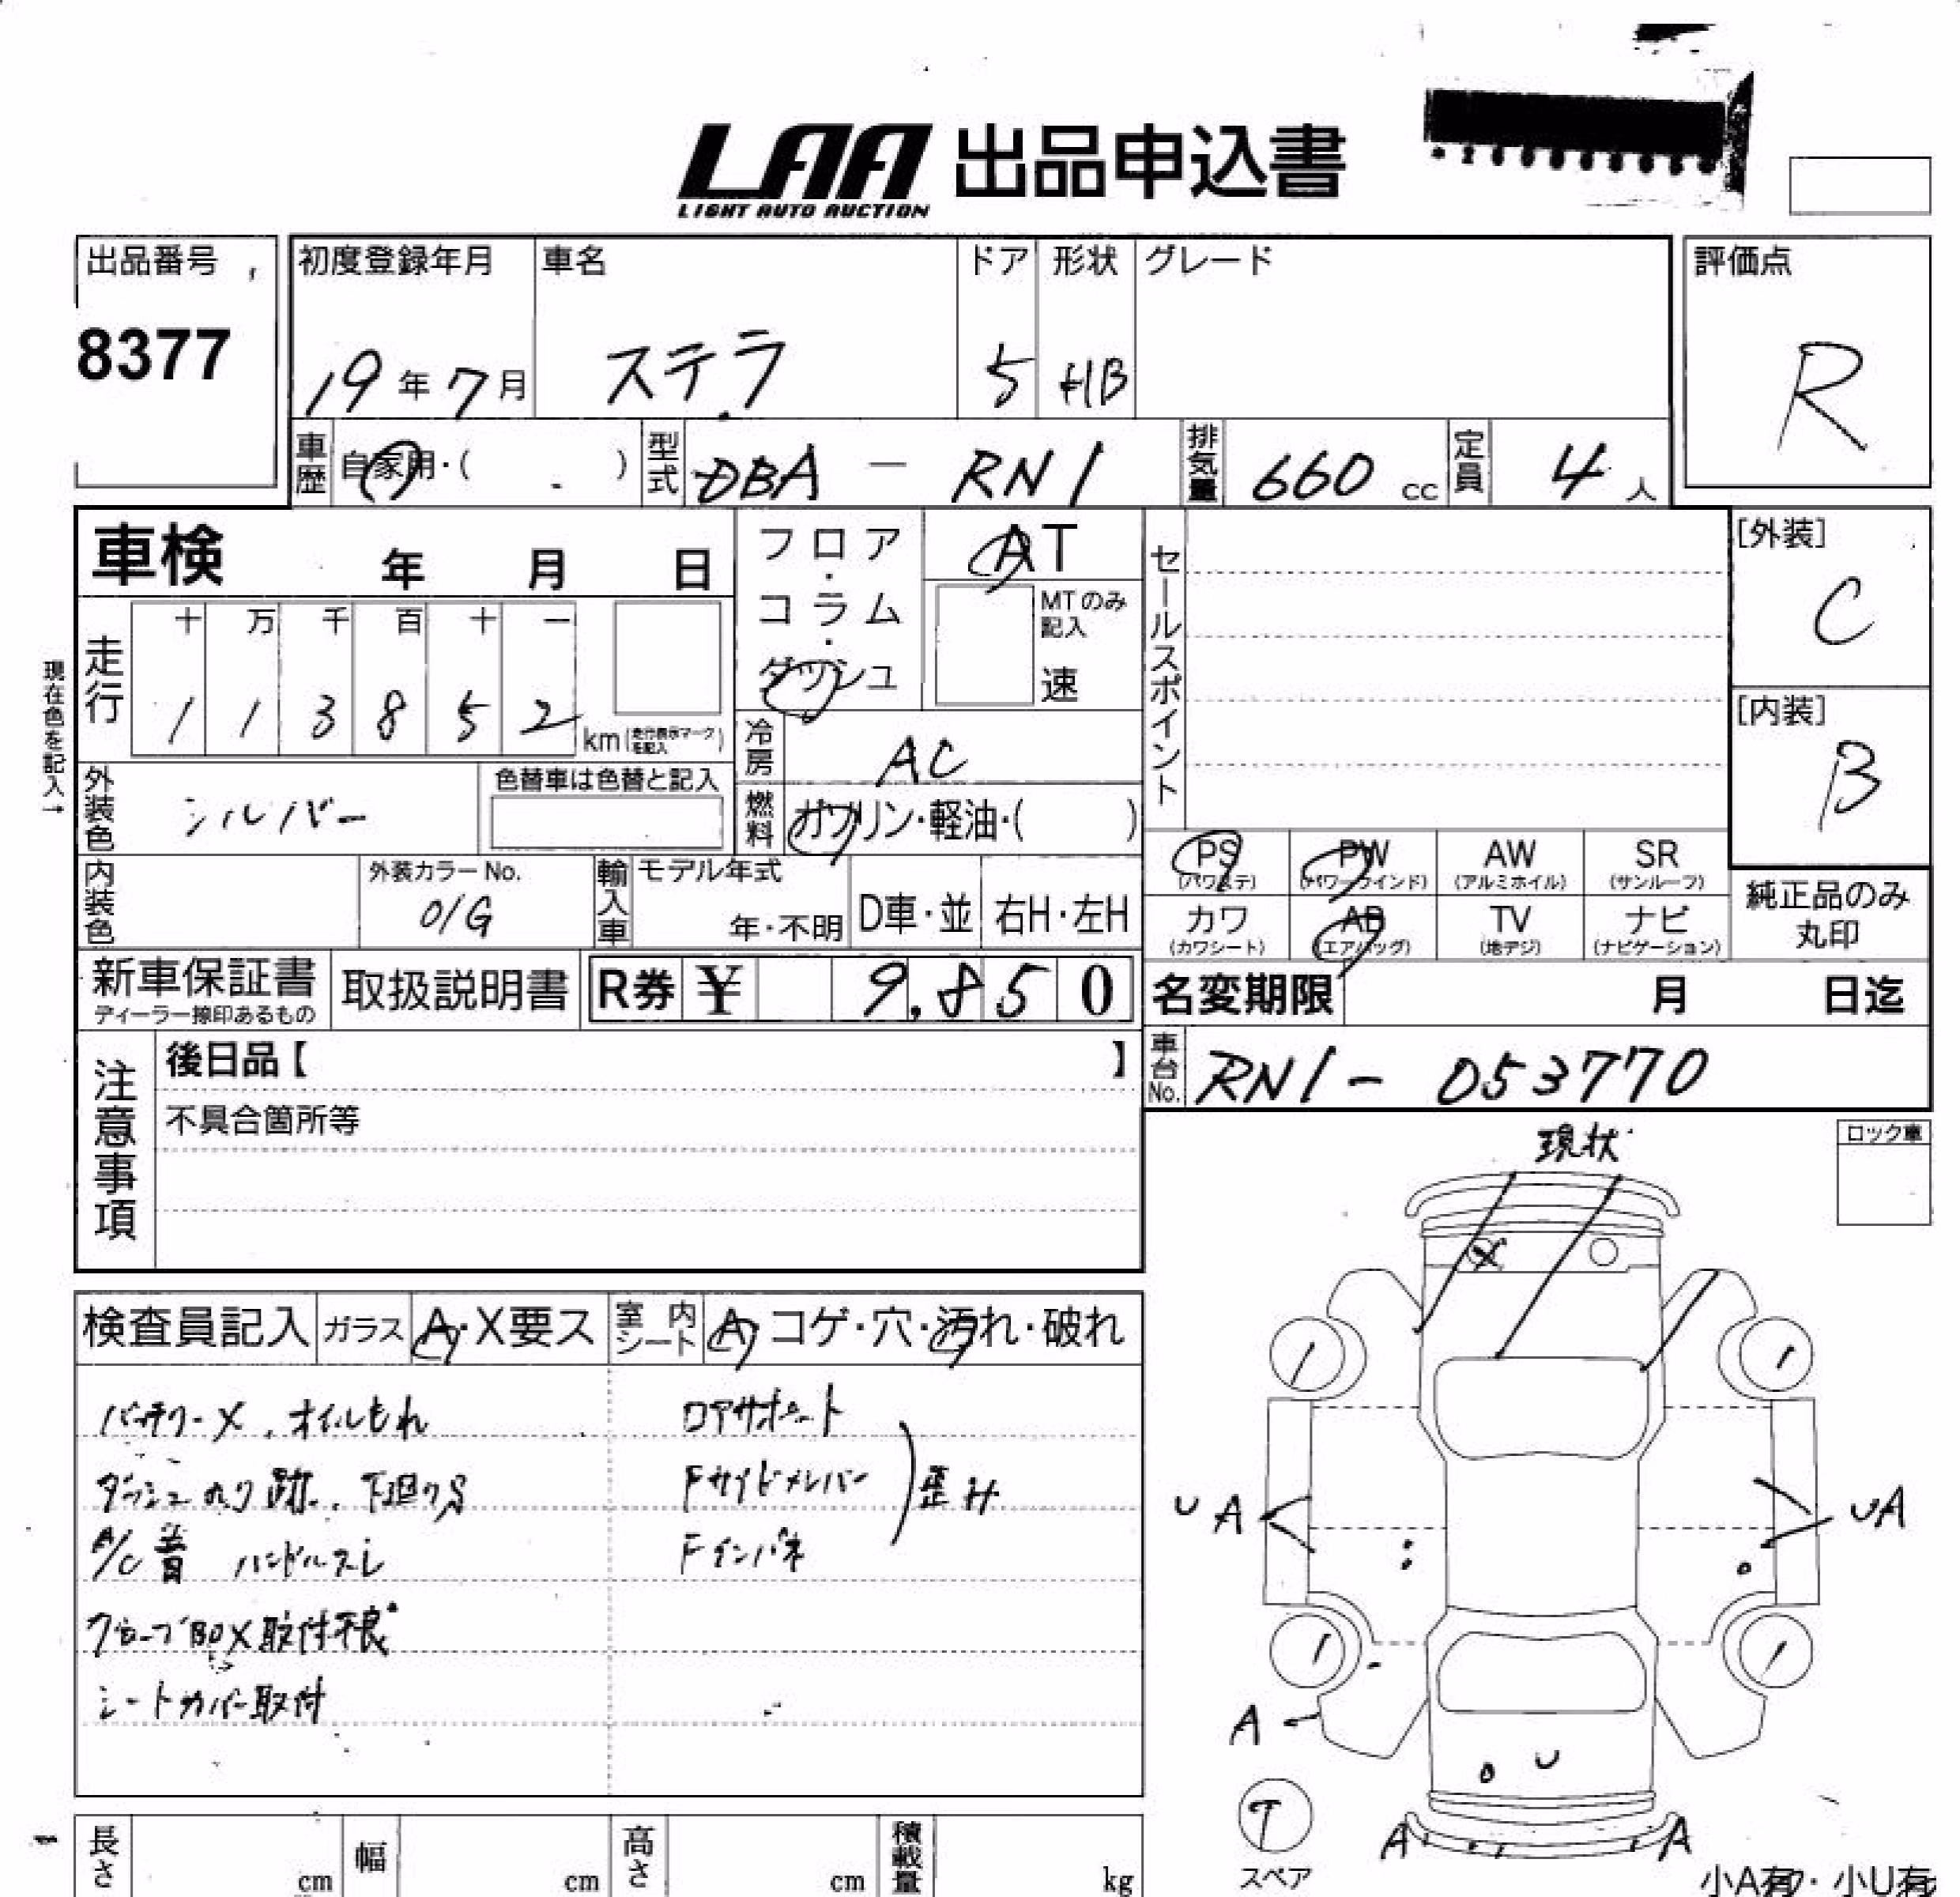 LAA 出品申込書
LIGHT AUTO AUCTION
出品番号
8377
初度登録年月
19年7月
車名
ステラ
ドア
5
形状
HB
グレード
評価点
R
車歴
自家用・( )
型式
DBA - RN1
排気量
660 cc
定員
4 人
車検 年 月 日
フロア・コラム・ダッシュ
AT
MTのみ記入
速
セールスポイント
[外装]
C
現在色を記入→
走行
十 万 千 百 十 一
1 1 3 8 5 2
km(走行表示マークを記入)
[内装]
B
冷房
AC
外装色
シルバー
色替車は色替と記入
燃料
ガソリン・軽油・( )
PS
(パワステ)
PW
(パワーウインド)
AW
(アルミホイル)
SR
(サンルーフ)
内装色
外装カラーNo.
01G
輸入車
モデル年式
年・不明
D車・並
右H・左H
カワ
(カワシート)
AB
(エアバッグ)
TV
(地デジ)
ナビ
(ナビゲーション)
純正品のみ
丸印
新車保証書
ディーラー捺印あるもの
取扱説明書
R券 ¥ 9,850
名変期限 月 日迄
注意事項
後日品【 】
不具合箇所等
車台No.
RN1 - 053770
現状
ロック車
検査員記入
ガラス
A・X要ス
室内シート
A・コゲ・穴・汚れ・破れ
バッテリーX、オイルもれ
ロアサポート
ダッシュのり跡、下廻りS
Fサイドメンバー
歪み
A/C音 ハンドルスレ
Fインパネ
グローブBOX取付不良
シートカバー取付
X
UA
UA
A
U
A
A
T
スペア
長さ
cm
幅
cm
高さ
cm
積載量
kg
小A有・小U有